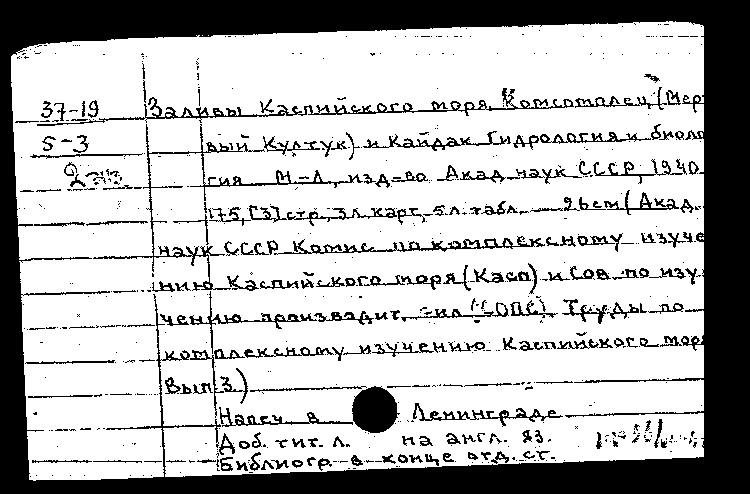 37-19 Заливы Каспийского моря Комсомолец (Мерт
5-3 вый Култук) и Кайдак Гидрология и биоло
2 экз гия М.-Л., изд-во Акад наук СССР, 1940
175, [3] стр, 3 л. карт, 5 л. табл. — 26 см (Акад.
наук СССР Комис. по комплексному изуче
нию Каспийского моря (Касп) и Сов по изу
чению производит. сил (СОПС) Труды по
комплексному изучению Каспийского моря
Вып 3)
Напеч в Ленинграде
Доб. тит. л. на англ. яз.
Библиогр в конце отд. ст.